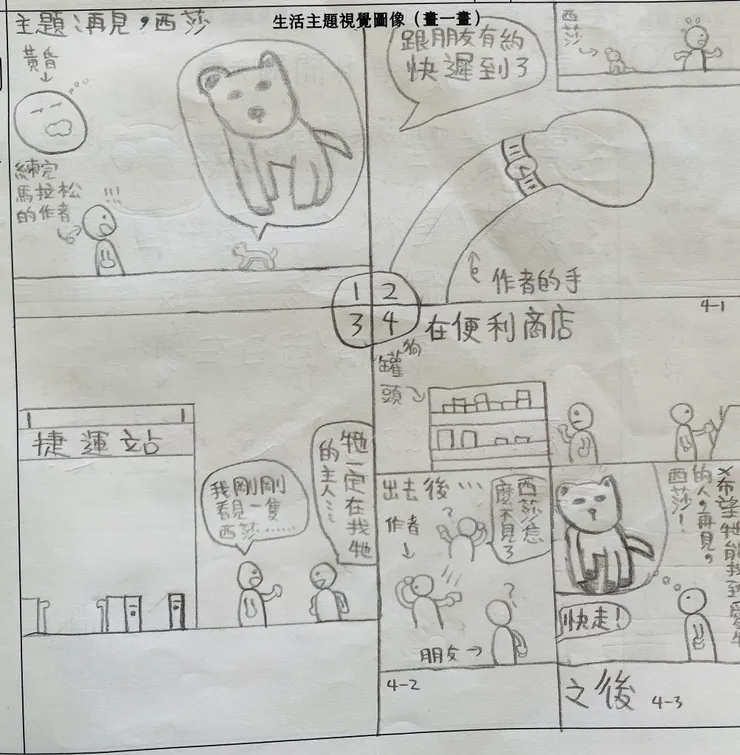 生活主題視覺圖像（畫一畫）
主題：再見，西莎
黃昏
練完
馬拉松
的作者
!!!
跟朋友有約
快遲到了
西莎
作者的手
1 2
3 4
捷運站
我剛剛
看見一隻
西莎……
牠一定在找牠
的主人…
4-1
在便利商店
狗
罐頭
出去後…
作者
?
西莎怎
麼不見了
?
朋友
4-2
希望牠能找到愛牠
的人，再見，
西莎！
快走！
之後
4-3